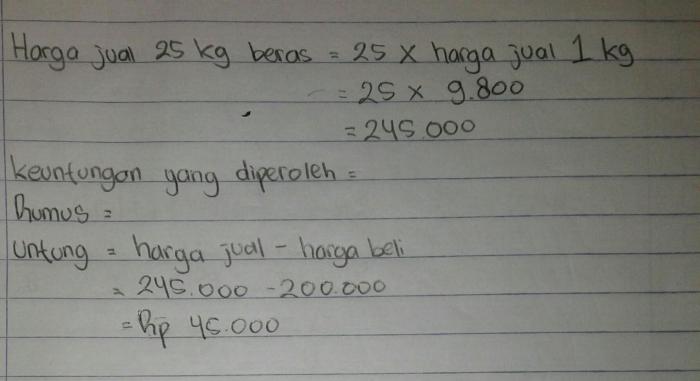 Harga jual 25 kg beras = 25 x harga jual 1 kg
= 25 x 9.800
= 245.000
keuntungan yang diperoleh =
Rumus =
Untung = harga jual - harga beli
= 245.000 - 200.000
= Rp 45.000